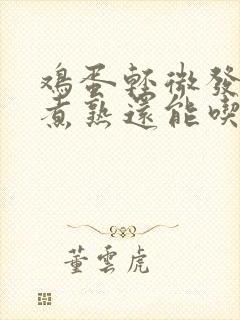 鸡蛋轻微發
煮熟還能喫
董雲虎